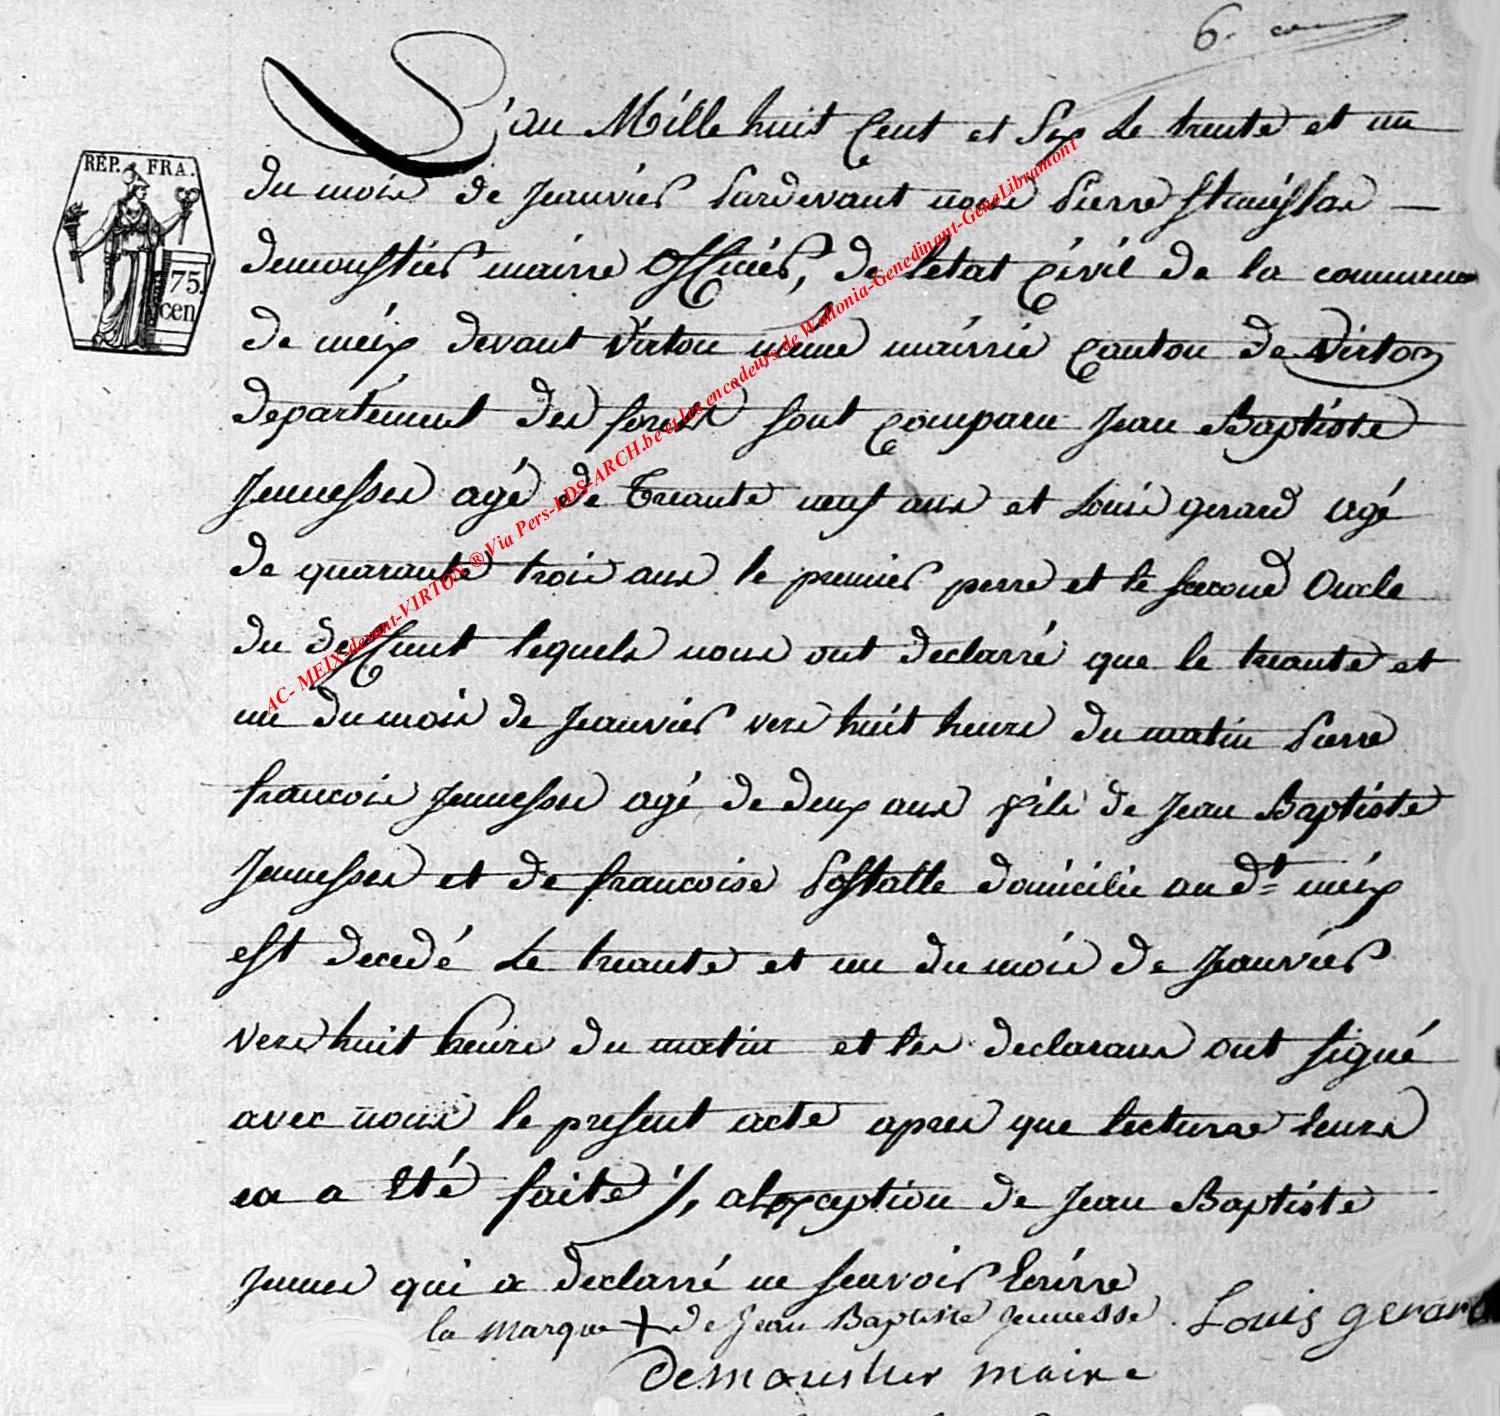 6e
L'an Mille huit Cent et Six Le trente et un
du mois de Jeanvier Pardevant nous Pierre Stanislas
demoustier mairre Officier, de l'etat Civil de la commune
de meix devant Virton même mairrie Canton de Virton
departement des forets sont Comparu Jean Baptiste
Jeunesses agé de Treante neuf ans et Louis gerard agé
de quarante trois ans le premier perre et le second Oncle
du deffunt lequels nous ont declarré que le treante et
un du mois de Jeanvier vers huit heure du matin Pierre
francois Jeunesses agé de deux ans fils de Jean Baptiste
Jeunesses et de francoise Postalle domicilie au dt meix
est decedé Le treante et un du mois de Jeanvier
vers huit heure du matin et les declarans ont signé
avec nous le present acte apres que lecturre leurs
en a Eté faite /, alexception de Jean Baptiste
Jeunes qui a declarré ne seavoir Ecrirre
la marque + de Jean Baptiste Jeunesse. Louis gerard
Demoustier maire
REP. FRA.
75.
cen
AC- MEIX-devant-VIRTON ® Via Pers-LDS-ARCH.be et les encodeurs de Wallonia-Genedinant-GeneLibramont